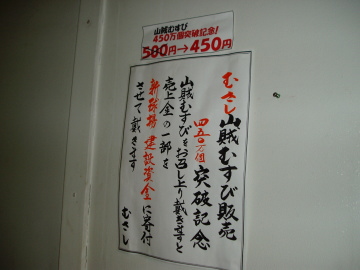 山賊むすび
450万個突破記念!
500円→450円
むさし山賊むすび販売
四五〇万個突破記念
山賊むすびをお召し上り戴きますと
売上金の一部を
新球場建設資金に寄付
させて戴きます
むさし